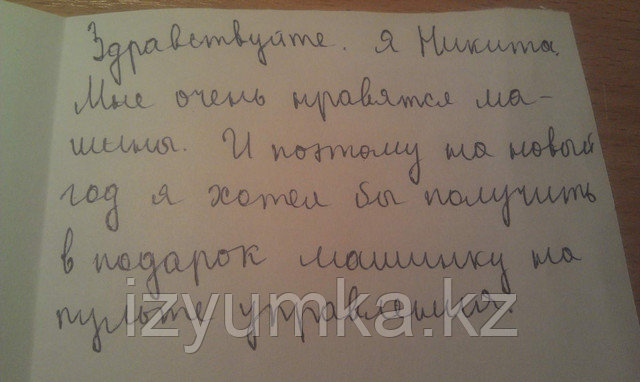 Здравствуйте. Я Никита.
Мне очень нравятся ма-
шины. И поэтому на новый
год я хотел бы получить
в подарок машинку на
пульте управления.
izyumka.kz